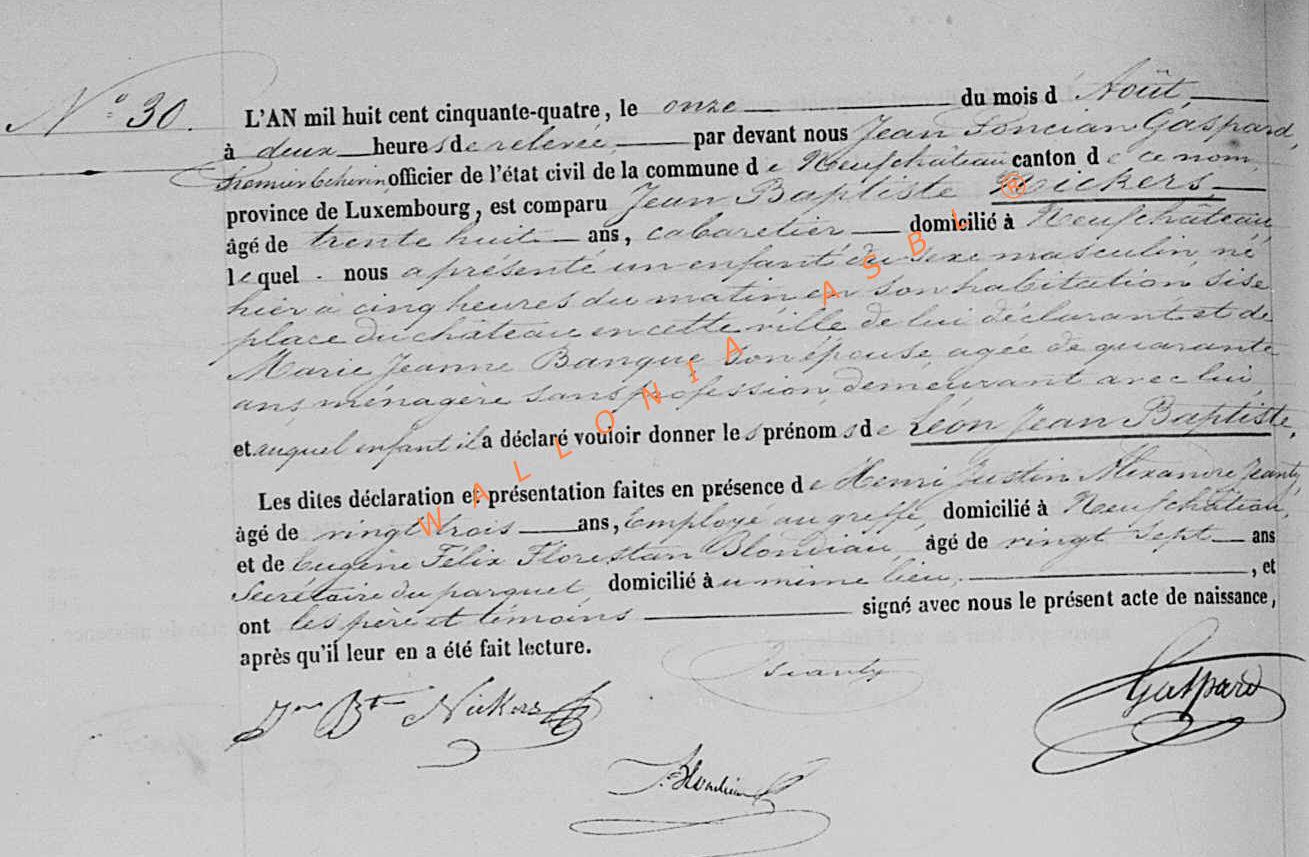 N° 30.
L'AN mil huit cent cinquante-quatre, le onze du mois d Août,
à deux heures de relevée, par devant nous Jean Poncian Gaspard,
Premier Echevin, officier de l'état civil de la commune de Neufchâteau canton de ce nom
province de Luxembourg, est comparu Jean Baptiste Nickers
âgé de trente huit ans, cabaretier domicilié à Neufchâteau,
lequel nous a présenté un enfant du sexe masculin, né
hier à cinq heures du matin en son habitation sise
place du château en cette ville de lui déclarant et de
Marie Jeanne Banque son épouse, agée de quarante
ans, ménagère sans profession, demeurant avec lui,
et auquel enfant il a déclaré vouloir donner les prénoms de Léon Jean Baptiste,
Les dites déclaration et présentation faites en présence de Henri Justin Alexandre Jeanty,
âgé de vingt trois ans, Employé au greffe, domicilié à Neufchâteau,
et de Eugène Félix Florestan Blondiau, âgé de vingt sept ans
Secrétaire du parquet, domicilié au même lieu, , et
ont les père et témoins signé avec nous le présent acte de naissance,
après qu'il leur en a été fait lecture.
Jeanty
Gaspard
Jean Bte Nickers
F. Blondiau
WALLONIA ASBL ®